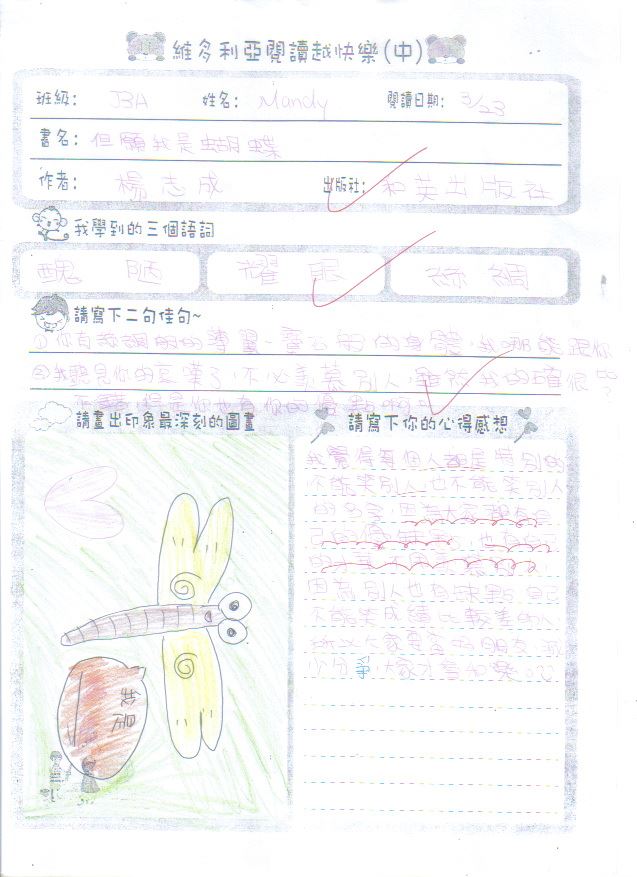 維多利亞閱讀越快樂(中)
班級: J3A 姓名: Mandy 閱讀日期: 3/23
書名: 但願我是蝴蝶
作者: 楊志成 出版社: 和英出版社
我學到的三個語詞
醜陋 耀眼 絲綢
請寫下二句佳句~
①你有絲綢般的薄翼、寶石般的身體,我哪能跟你比?
②我聽見你的哀嘆了,不必羨慕別人,雖然我的確很
不 但是你也有你的優點啊
請畫出印象最深刻的圖畫 請寫下你的心得感想
我覺得每個人都是特別的
不能笑別人,也不能罵別人
因為大家都有自
己的 也有自己
的
因為別人也有 自己
不能笑成績比較差的人
所以大家要當好朋友,減
少分爭,大家才會和樂。